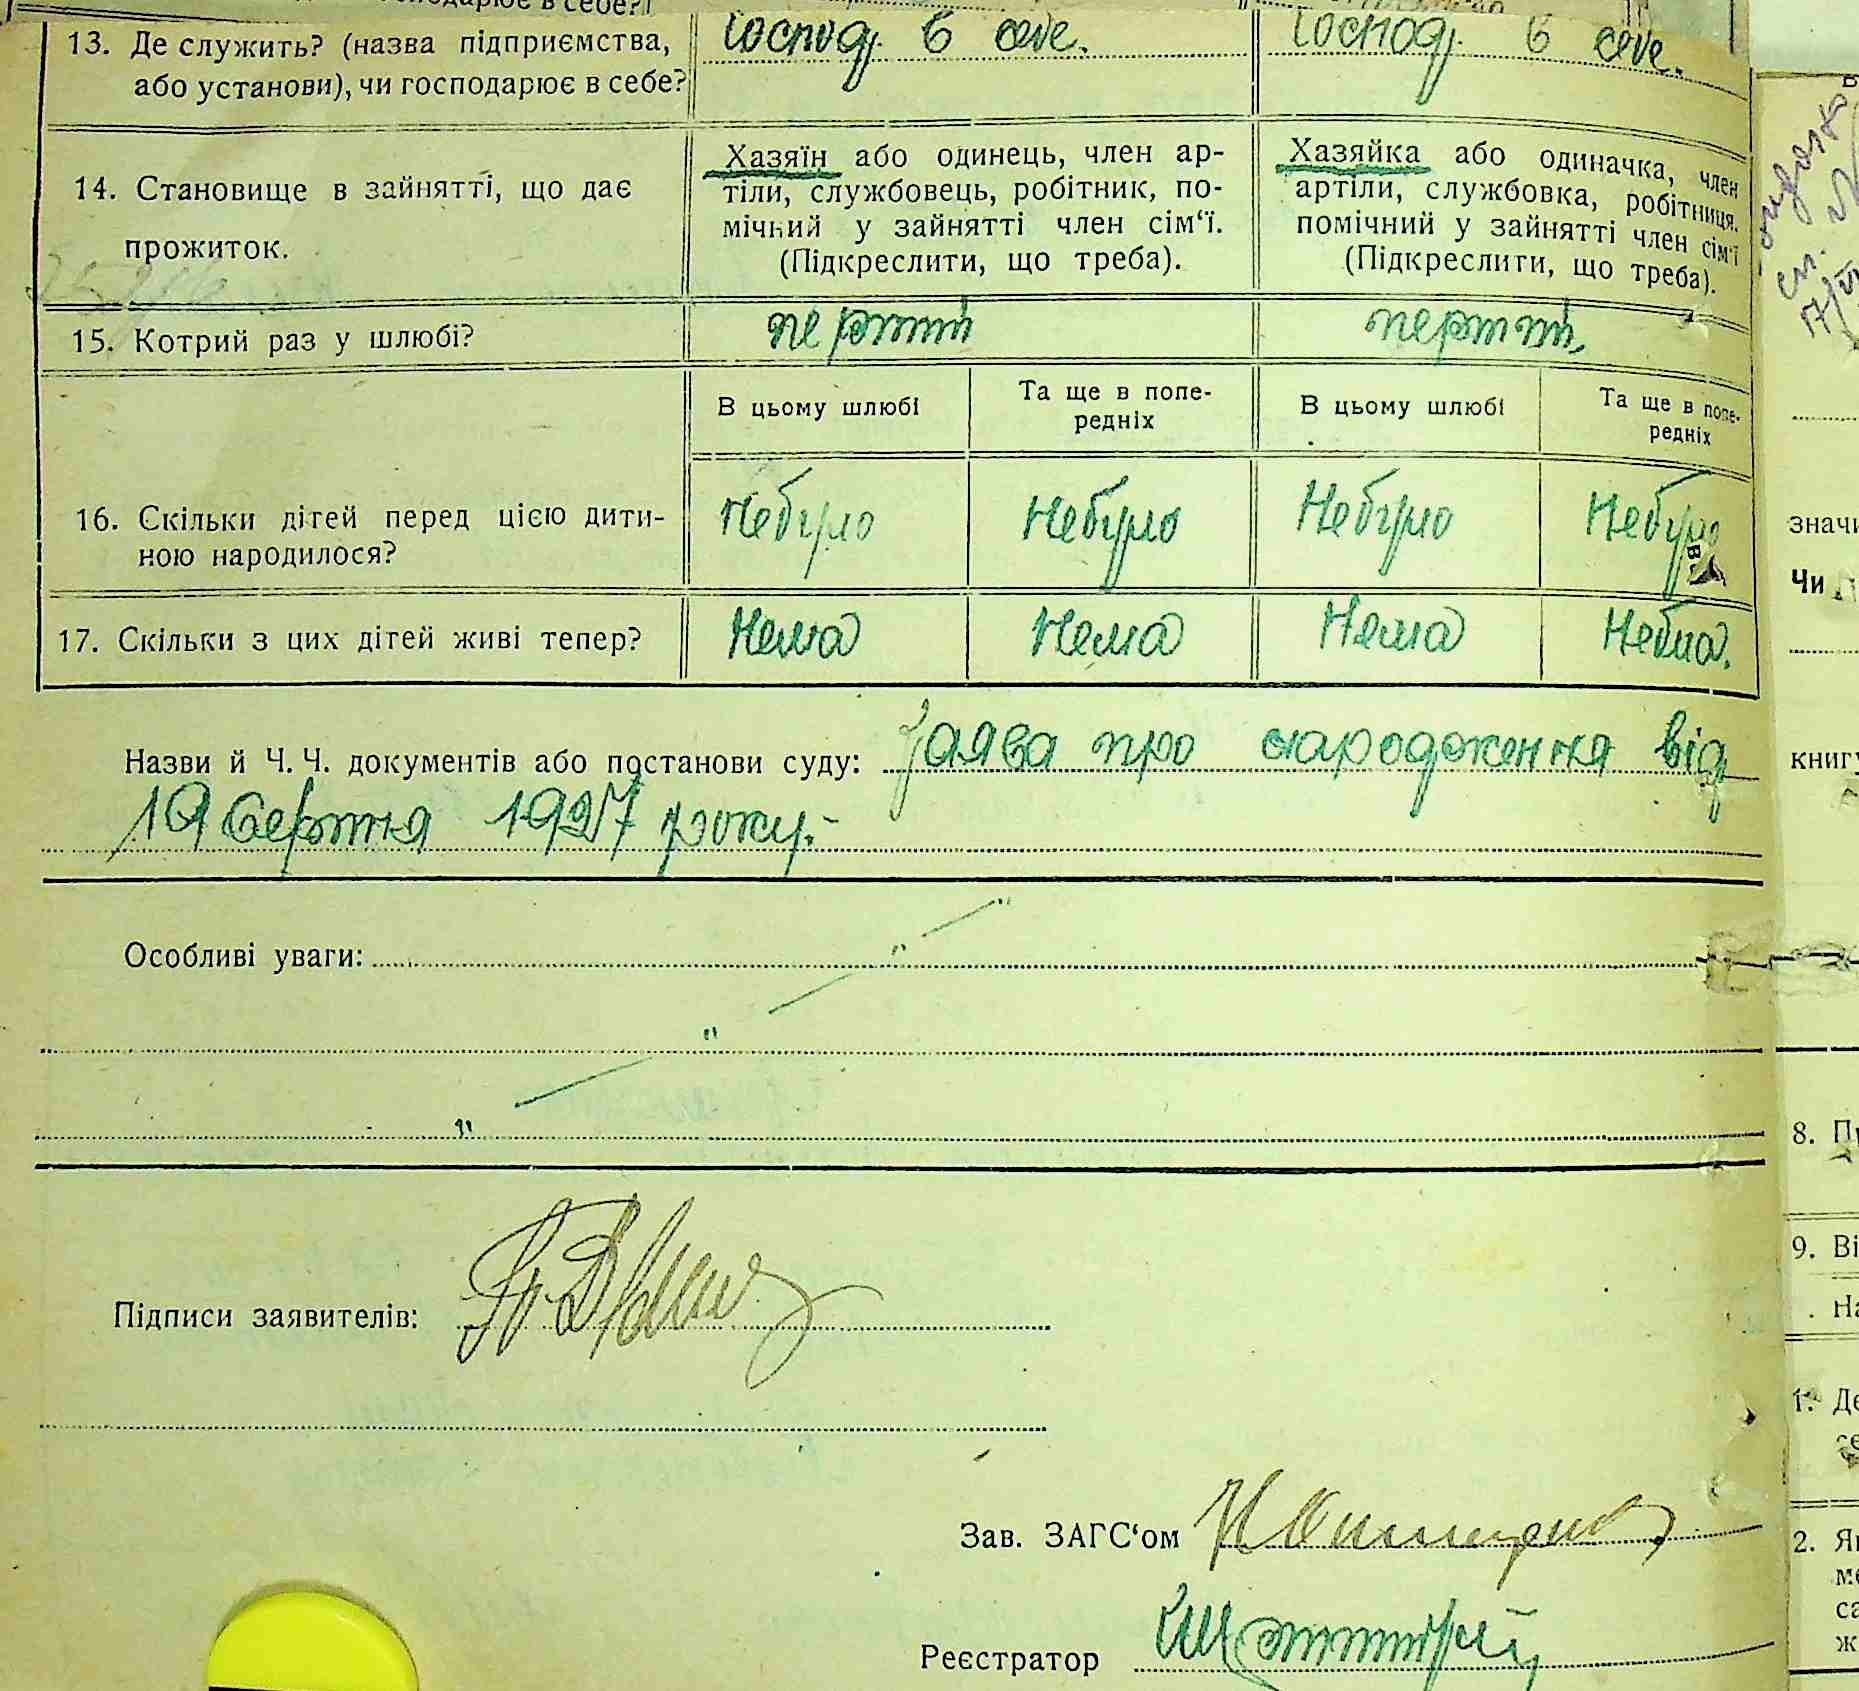 13. Де служить? (назва підприємства, або установи), чи господарює в себе?
Господ. в себе.
Господ. в себе.
14. Становище в зайнятті, що дає прожиток.
Хазяїн або одинець, член ар-
тіли, службовець, робітник, по-
мічний у зайнятті член сім‘ї.
(Підкреслити, що треба).
Хазяйка або одиначка, член
артіли, службовка, робітниця.
помічний у зайнятті член сім‘ї
(Підкреслити, що треба).
15. Котрий раз у шлюбі?
перший
перший
В цьому шлюбі
Та ще в попе-
редніх
В цьому шлюбі
Та ще в попе-
редніх
16. Скільки дітей перед цією дити-
ною народилося?
Небуло
Небуло
Небуло
Небуло
17. Скільки з цих дітей живі тепер?
Нема
Нема
Нема
Назви й Ч. Ч. документів або постанови суду: Заява про народження від
19 Серпня 1927 року.-
Особливі уваги:
Підписи заявителів:
Зав. ЗАГС‘ом
Реєстратор
значи
Чи
книгу
8.
9. Ві
На
1. Де
2.